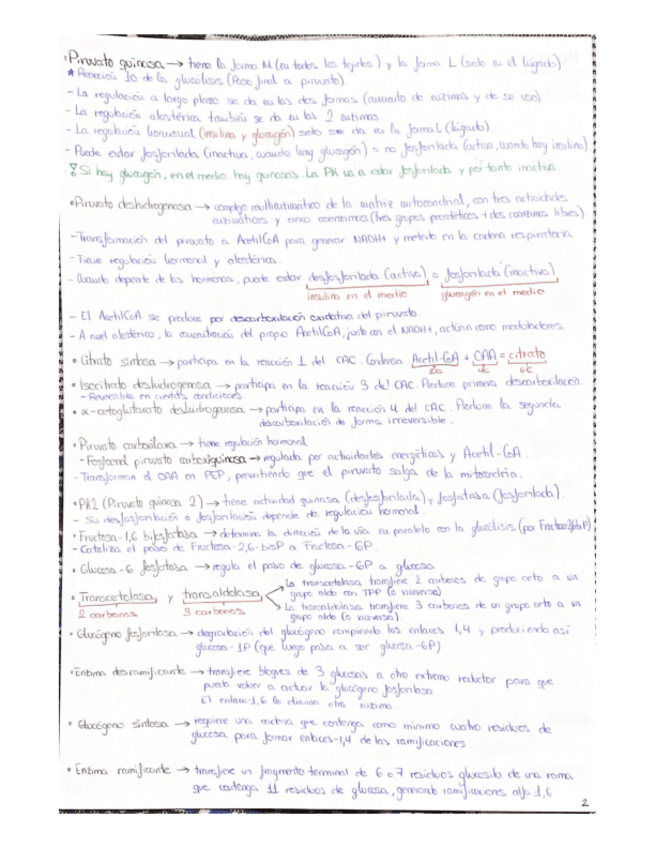 • Piruvato quinasa → tiene la forma M (en todos los tejidos) y la forma L (solo en el hígado)
* Reacción 10 de la glucólisis (Paso final a piruvato).
- La regulación a largo plazo se da en las dos formas (aumento de enzimas y de su uso)
- La regulación alostérica también se da en las 2 enzimas
- La regulación hormonal (insulina y glucagón) solo se da en la forma L (hígado)
- Puede estar fosforilada (inactiva, cuando hay glucagón) o no fosforilada (activa, cuando hay insulina)
Si hay glucagón, en el medio hay quinasas. La PK va a estar fosforilada y por tanto inactiva
• Piruvato deshidrogenasa → complejo multienzimático de la matriz mitocondrial, con tres actividades
enzimáticas y cinco coenzimas (tres grupos prostéticos + dos coenzimas libres)
- Transformación del piruvato a AcetilCoA para generar NADH+ y meterlo en la cadena respiratoria
- Tiene regulación hormonal y alostérica.
- Cuando depende de las hormonas, puede estar desfosforilada (activa) o fosforilada (inactiva)
insulina en el medio glucagón en el medio
- El AcetilCoA se produce por descarboxilación oxidativa del piruvato.
- A nivel alostérico, la concentración del propio AcetilCoA, junto con el NADH+, actúan como moduladores.
• Citrato sintasa → participa en la reacción 1 del CAC. Condensa Acetil-CoA + OAA = citrato
2C 4C 6C
• Isocitrato deshidrogenasa → participa en la reacción 3 del CAC. Produce primera descarboxilación.
- Reversible en ciertas condiciones
• α-cetoglutarato deshidrogenasa → participa en la reacción 4 del CAC. Produce la segunda
descarboxilación de forma irreversible.
• Piruvato carboxilasa → tiene regulación hormonal
- Fosfoenol piruvato carboxiquinasa → regulada por actividades energéticas y Acetil-CoA.
- Transforman el OAA en PEP, permitiendo que el piruvato salga de la mitocondria.
• PK2 (Piruvato quinasa 2) → tiene actividad quinasa (desfosforilada) y fosfatasa (fosforilada).
- Su desfosforilación o fosforilación depende de regulación hormonal.
• Fructosa-1,6 bifosfatasa → determina la dirección de la vía en paralelo con la glucólisis (por
- Cataliza el paso de Fructosa-2,6-bisP a Fructosa-6P.
• Glucosa-6 fosfatasa → regula el paso de glucosa-6P a glucosa
• Transcetolasa y transaldolasa
2 carbonos 3 carbonos
La transcetolasa transfiere 2 carbonos de grupo ceto a un
grupo aldo con TPP (o viceversa)
La transaldolasa transfiere 3 carbonos de un grupo ceto a un
grupo aldo (o viceversa).
• Glucógeno fosforilasa → degradación del glucógeno rompiendo los enlaces 1,4 y produciendo así
glucosa-1P (que luego pasa a ser glucosa-6P)
• Enzima desramificante → transfiere bloques de 3 glucosas a otro extremo reductor para que
pueda volver a actuar la glucógeno fosforilasa
El enlace 1,6 lo otra enzima
• Glucógeno sintasa → requiere una cadena que contenga como mínimo cuatro residuos de
glucosa para formar enlaces-1,4 de las ramificaciones
• Enzima ramificante → transfiere un fragmento terminal de 6 o 7 residuos glucosilo de una rama
que contenga 11 residuos de glucosa, generando ramificaciones alfa 1,6
2